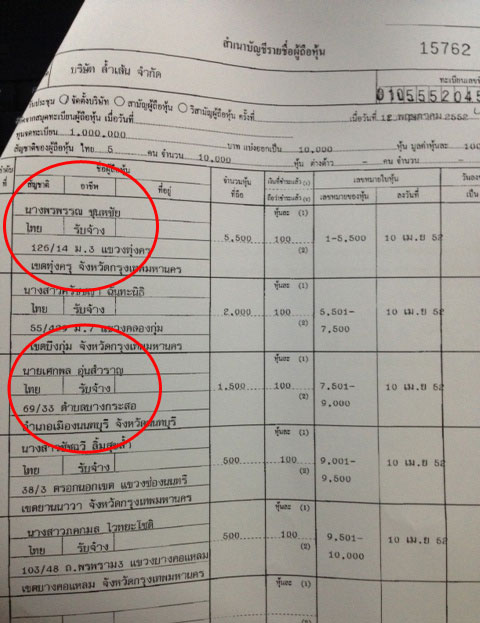 สำเนาบัญชีรายชื่อผู้ถือหุ้น 15762
บริษัท ล้ำเส้น จำกัด ทะเบียนเลขที่
0105552045
ประชุม จัดตั้งบริษัท สามัญผู้ถือหุ้น วิสามัญผู้ถือหุ้น ครั้งที่ เมื่อวันที่ 15 พฤษภาคม 2552
สมุดทะเบียนผู้ถือหุ้น เมื่อวันที่
ทุนจดทะเบียน 1,000,000 บาท แบ่งออกเป็น 10,000 หุ้น มูลค่าหุ้นละ 100
สัญชาติของผู้ถือหุ้น ไทย 5 คน จำนวน 10,000 หุ้น ต่างด้าว - คน จำนวน -
ลำดับที่ ชื่อผู้ถือหุ้น จำนวนหุ้นที่ถือ เงินที่ชำระแล้ว (1) เลขหมายใบหุ้น
สัญชาติ อาชีพ ที่อยู่ ถือว่าชำระแล้ว (2) เลขหมายของหุ้น ลงวันที่ เป็น
นางพรพรรณ ชุนหชัย หุ้นละ (1)
ไทย รับจ้าง 5,500 100 1-5,500 10 เม.ย 52
126/14 ม.3 แขวงทุ่งครุ (2)
เขตทุ่งครุ จังหวัดกรุงเทพมหานคร
นางสาว หุ้นละ (1)
ไทย รับจ้าง 2,000 100 5,501- 10 เม.ย 52
ม.7 แขวงคลองกุ่ม (2) 7,500
เขตบึงกุ่ม จังหวัดกรุงเทพมหานคร
นายเศกพล อุ่นสำราญ หุ้นละ (1)
ไทย รับจ้าง 1,500 100 7,501- 10 เม.ย 52
69/33 ตำบลบางกระสอ (2) 9,000
อำเภอเมืองนนทบุรี จังหวัดนนทบุรี
นางสาว หุ้นละ (1)
ไทย รับจ้าง 500 100 9,001- 10 เม.ย 52
38/3 ตรอกนอกเขต แขวงช่องนนทรี (2) 9,500
เขตยานนาวา จังหวัดกรุงเทพมหานคร
นางสาวภคกมล ไวทยะโชติ หุ้นละ (1)
ไทย รับจ้าง 500 100 9,501- 10 เม.ย 52
103/48 ถ.พระราม3 แขวงบางคอแหลม (2) 10,000
เขตบางคอแหลม จังหวัดกรุงเทพมหานคร
หุ้นละ (1)